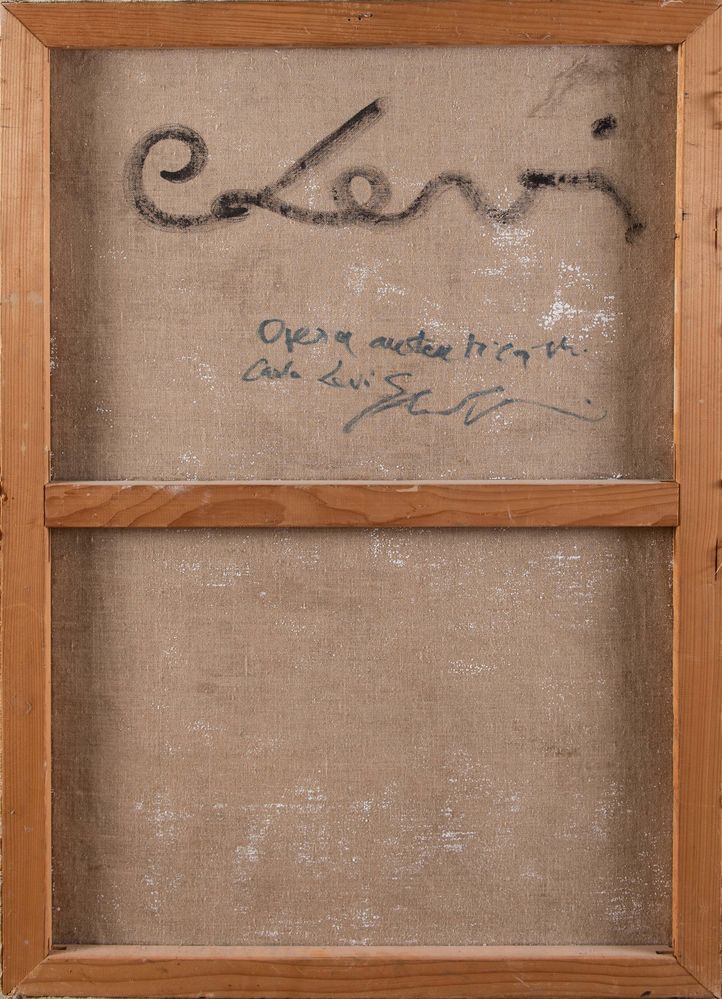 C. Levi
Opera autentica di
Carlo Levi